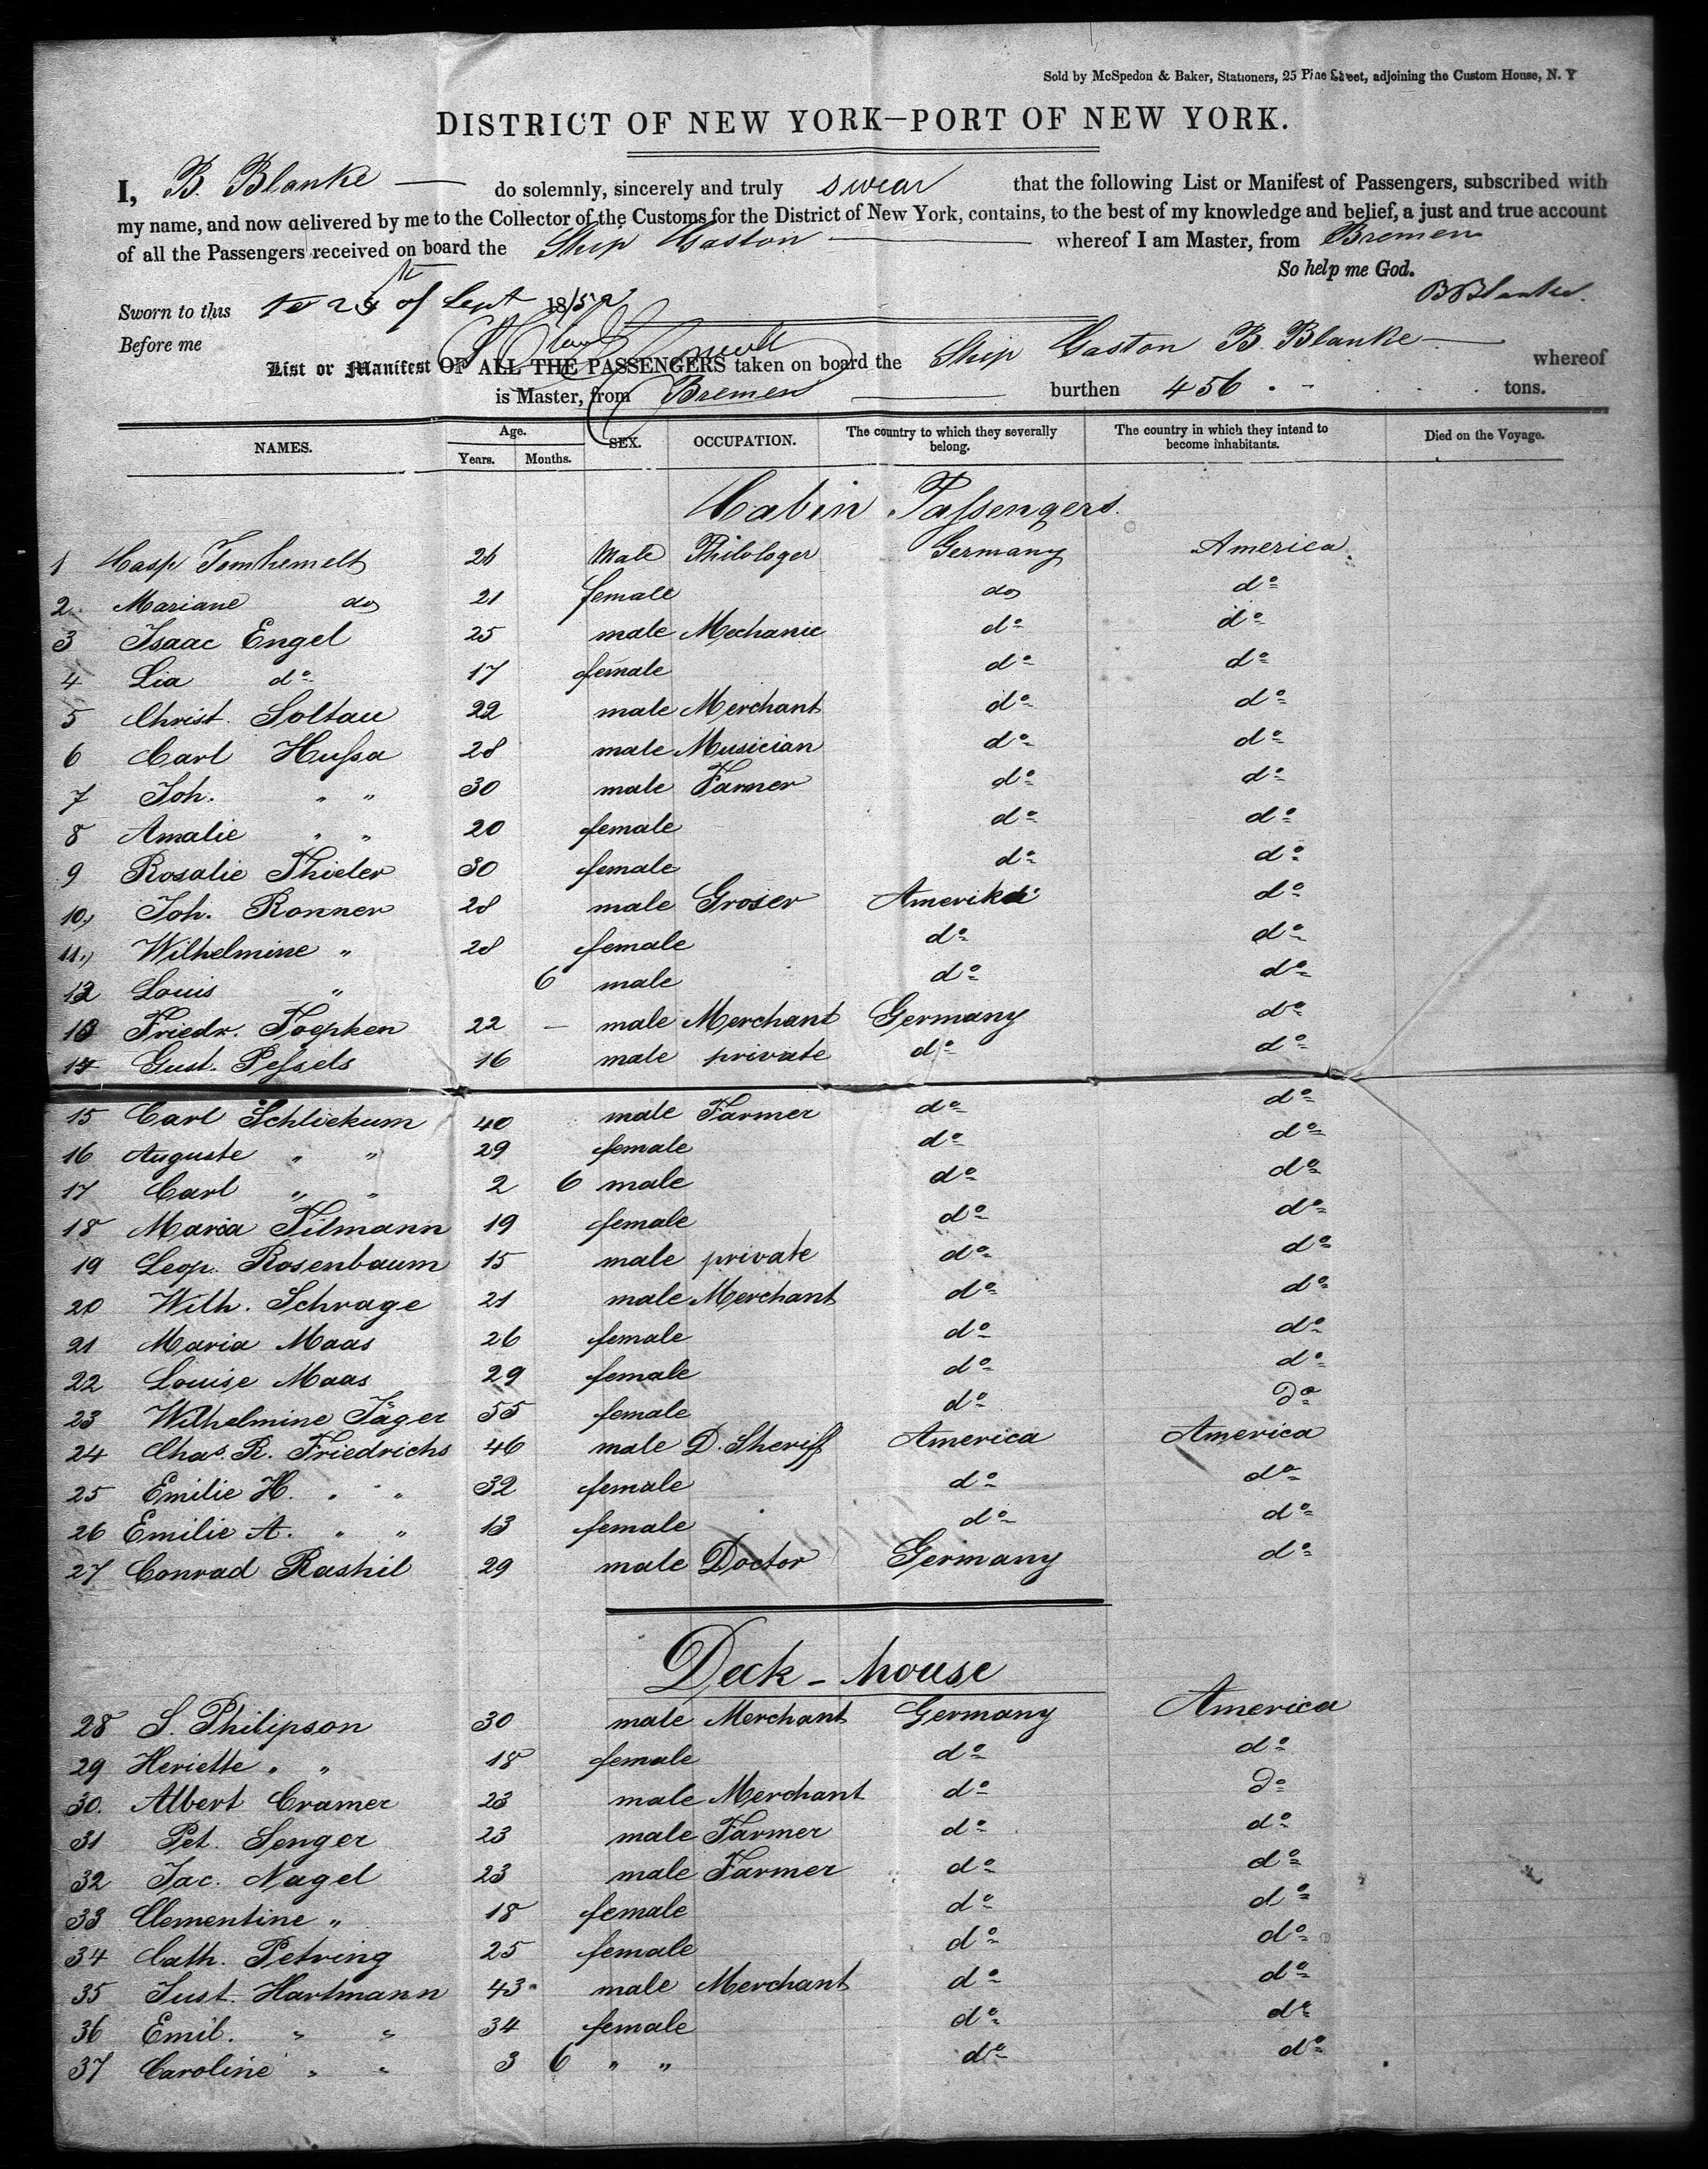 Sold by McSpedon & Baker, Stationers, 25 Pine Street, adjoining the Custom House, N. Y
DISTRICT OF NEW YORK—PORT OF NEW YORK.
I, B. Blanke — do solemnly, sincerely and truly swear that the following List or Manifest of Passengers, subscribed with
my name, and now delivered by me to the Collector of the Customs for the District of New York, contains, to the best of my knowledge and belief, a just and true account
of all the Passengers received on board the Ship Gaston — whereof I am Master, from Bremen
So help me God.
Sworn to this of Sept 1852 BBlanke.
Before me
List or Manifest OF ALL THE PASSENGERS taken on board the Ship Gaston B. Blanke — whereof
is Master, from Bremen — burthen 456 tons.
NAMES. Age. Years. Months. SEX. OCCUPATION. The country to which they severally belong. The country in which they intend to become inhabitants. Died on the Voyage.
Cabin Passengers.
1 Casp 26 Male Philologer Germany America
2. Mariane do 21 female do do
3 Isaac Engel 25 male Mechanic do do
4 Lia do 17 female do do
5 Christ. Soltau 22 male Merchant do do
6 Carl Hussa 28 male Musician do do
7 Joh. " " 30 male Farmer do do
8 Amalie " " 20 female do do
9 Rosalie Thieler 30 female do do
10, Joh. Ronner 28 male Groser Amerika do
11, Wilhelmine " 28 female do do
12 Louis " 6 male do do
13 Friedr. Toepken 22 — male Merchant Germany do
14 Gust. Pessels 16 male private do do
15 Carl Schliekum 40 male Farmer do do
16 Auguste " " 29 female do do
17 Carl " " 2 6 male do do
18 Maria Tilmann 19 female do do
19 Leop. Rosenbaum 15 male private do do
20 Wilh. Schrage 21 male Merchant do do
21 Maria Maas 26 female do do
22 Louise Maas 29 female do do
23 Wilhelmine Jäger 55 female do do
24 Chas. R. Friedrichs 46 male D. Sheriff America America
25 Emilie H. " " 32 female do do
26 Emilie A. " " 13 female do do
27 Conrad Rashil 29 male Doctor Germany do
Deck-house
28 S. Philipson 30 male Merchant Germany America
29 Heriette " " 18 female do do
30. Albert Cramer 23 male Merchant do do
31 Pet. Senger 23 male Farmer do do
32 Jac. Nagel 23 male Farmer do do
33 Clementine " 18 female do do
34 Cath. Petring 25 female do do
35 Just. Hartmann 43 male Merchant do do
36 Emil. " " 34 female do do
37 Caroline " " 3 6 " " do do